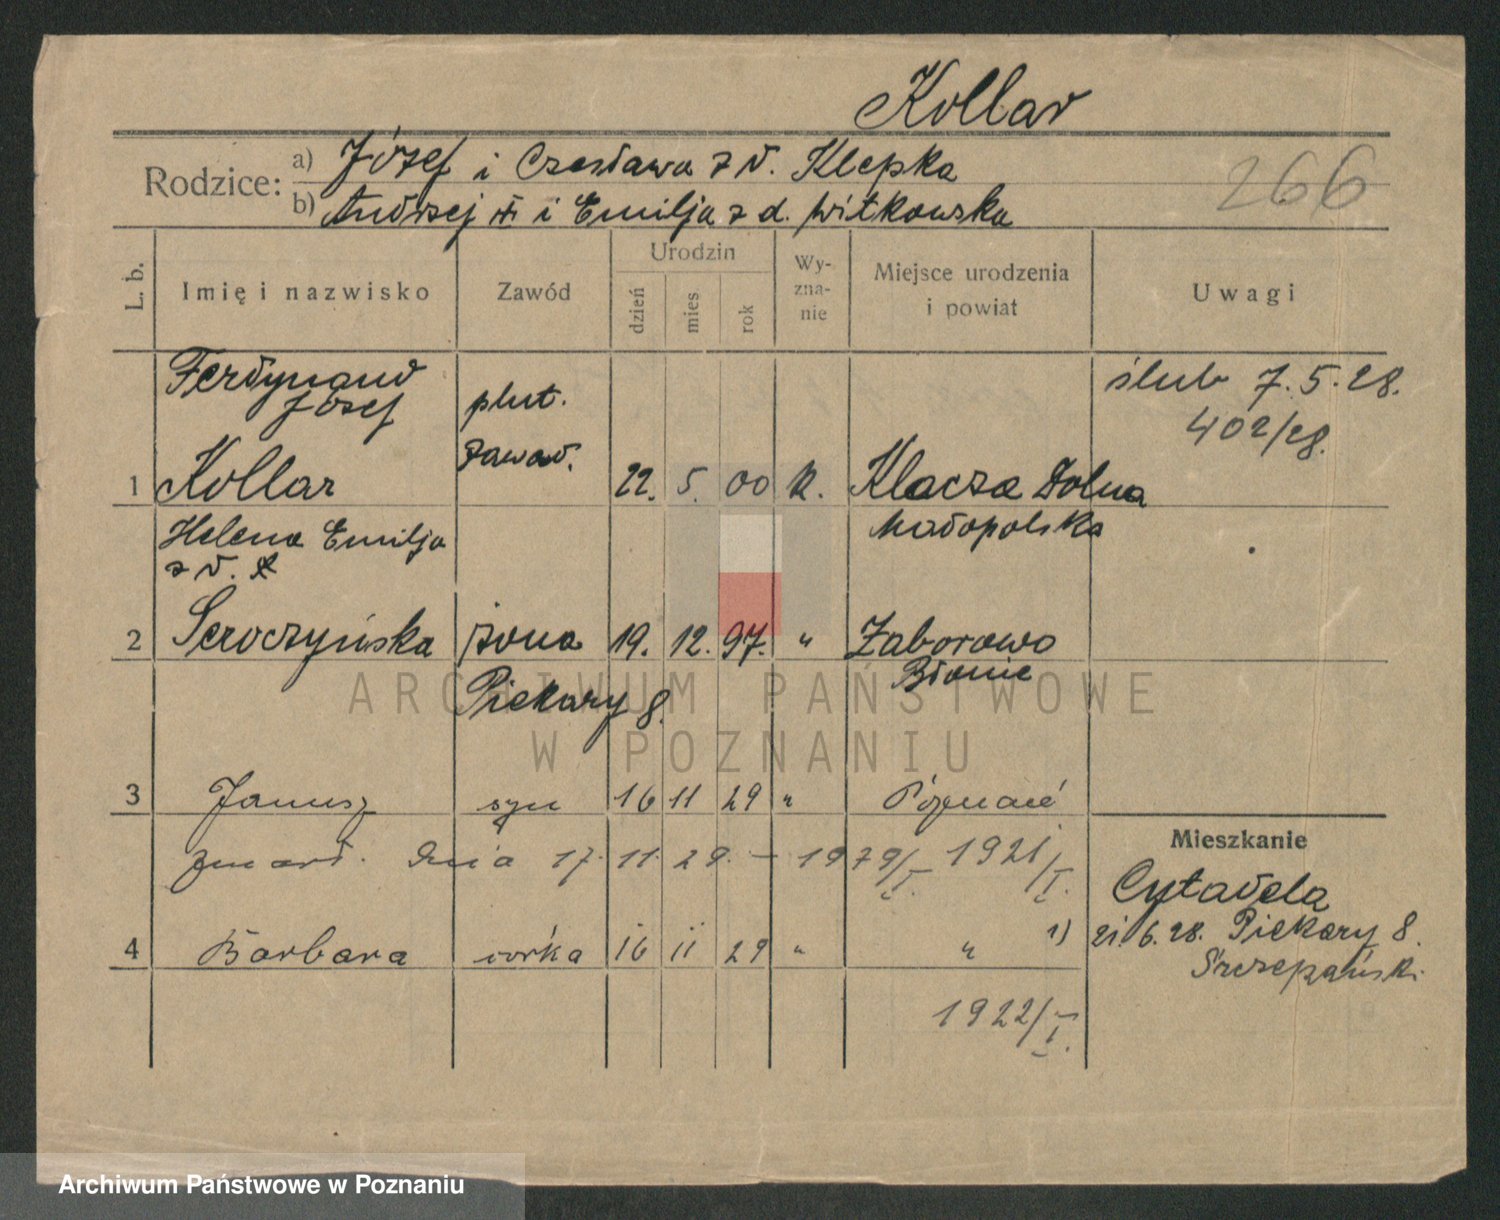 Kollar
266
Rodzice: a) Józef i Czesława z d. Klepka
b) Andrzej i Emilja z d. Witkowska
L. b. Imię i nazwisko Zawód Urodzin dzień mies rok Wy-zna-nie Miejsce urodzenia i powiat Uwagi
Ferdynand ślub 7.5.28.
Józef plut. 402/28.
zawod.
1 Kollar 22. 5. 00 k. Klacza Dolna
Helena Emilja Małopolska
z d.
2 Seroczyńska żona 19. 12. 97. " Zaborowo
Błonie
Piekary 8.
ARCHIWUM PAŃSTWOWE
W POZNANIU
3 Janusz syn 16 11 29 " Poznań
zmarł. dnia 17. 11. 29. – 1979/I. 1921/I.
Mieszkanie
Cytadela
1) 21.6.28. Piekary 8.
4 Barbara córka 16 11 29 " "
Szczepański
1922/I.
Archiwum Państwowe w Poznaniu